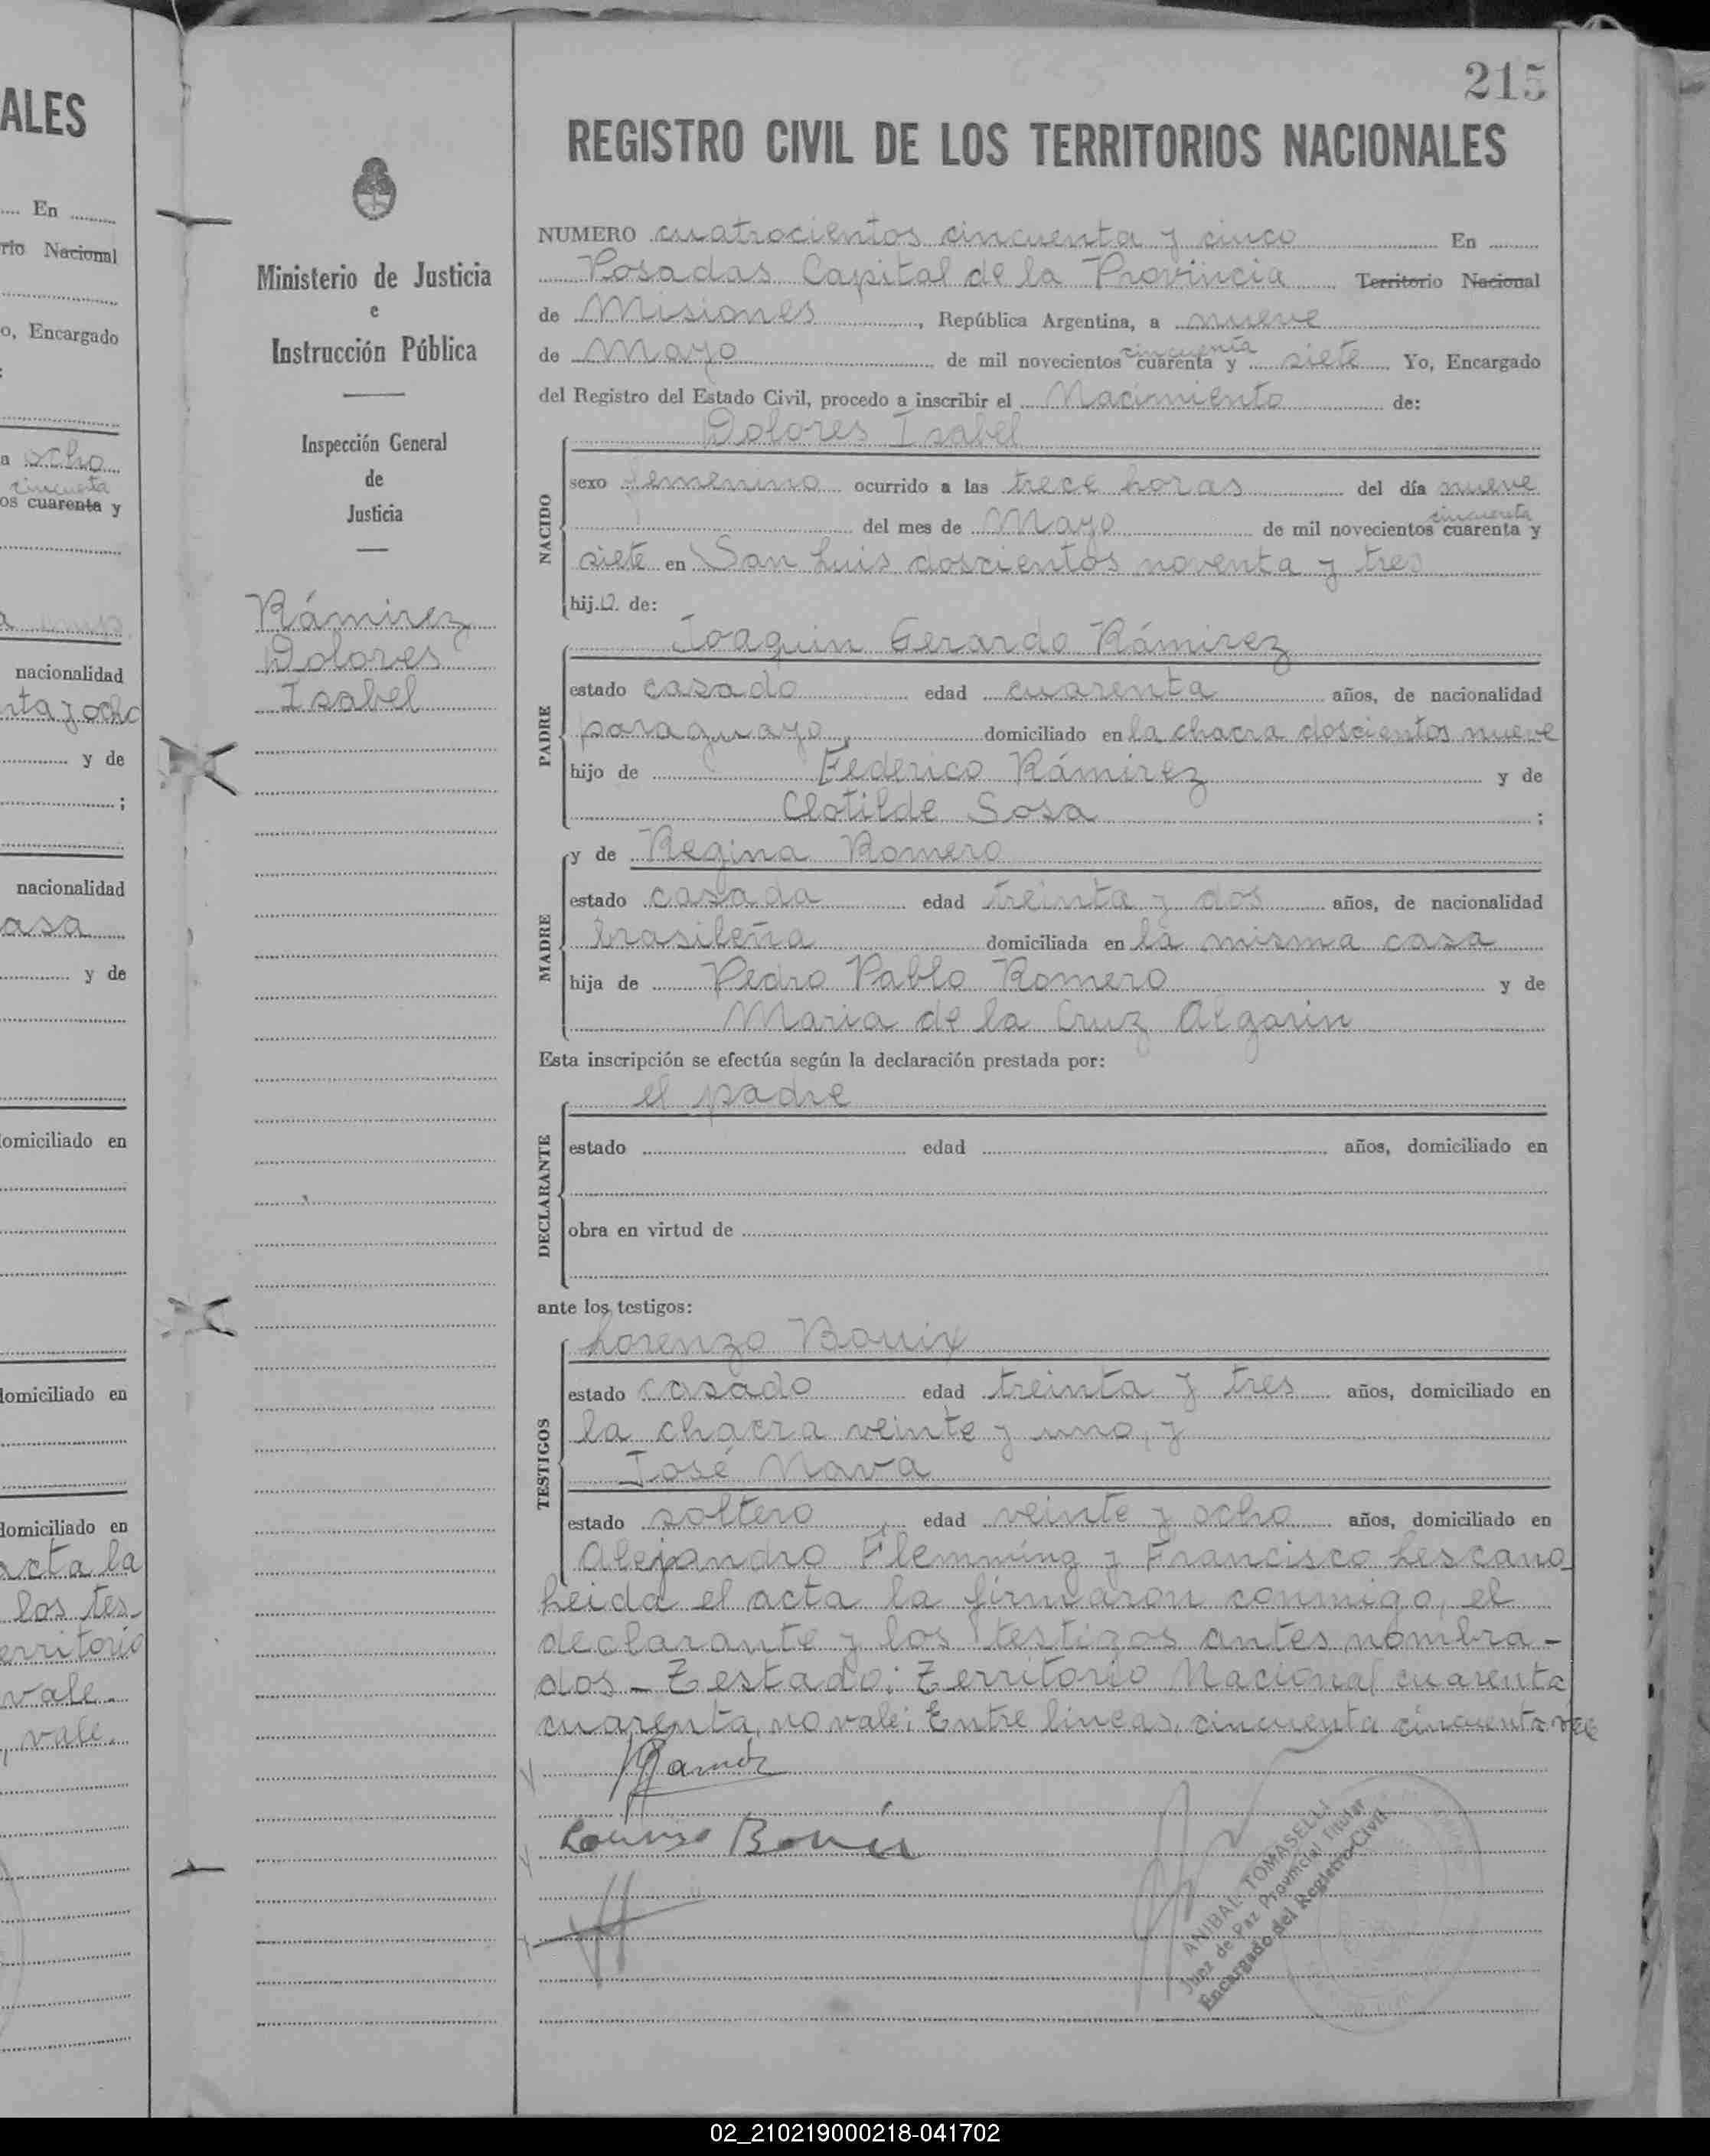 ALES
En
rio Nacional
o, Encargado
a ocho
cincuenta
os cuarenta y
nacionalidad
nta y ocho
y de
;
nacionalidad
asa
y de
domiciliado en
domiciliado en
domiciliado en
acta la
los tes
erritorio
vale.
, vale.
Ministerio de Justicia
e
Instrucción Pública
Inspección General
de
Justicia
Rámirez
Dolores
Isabel
215
REGISTRO CIVIL DE LOS TERRITORIOS NACIONALES
NUMERO cuatrocientos cincuenta y cinco En
Posadas Capital de la Provincia Territorio Nacional
de Misiones, República Argentina, a nueve
de Mayo de mil novecientos cincuenta cuarenta y siete Yo, Encargado
del Registro del Estado Civil, procedo a inscribir el Nacimiento de:
NACIDO
Dolores Isabel
sexo femenino ocurrido a las trece horas del día nueve
del mes de Mayo de mil novecientos cincuenta cuarenta y
siete en San Luis doscientos noventa y tres
hij.a. de:
PADRE
Joaquin Gerardo Rámirez
estado casado edad cuarenta años, de nacionalidad
paraguayo, domiciliado en la chacra doscientos nueve
hijo de Federico Rámirez y de
Clotilde Sosa ;
MADRE
y de Regina Romero
estado casada edad treinta y dos años, de nacionalidad
brasileña domiciliada en la misma casa
hija de Pedro Pablo Romero y de
Maria de la Cruz Algarin
Esta inscripción se efectúa según la declaración prestada por:
DECLARANTE
el padre
estado edad años, domiciliado en
obra en virtud de
ante los testigos:
TESTIGOS
Lorenzo Bouix
estado casado edad treinta y tres años, domiciliado en
la chacra veinte y uno, y
José Nava
estado soltero edad veinte y ocho años, domiciliado en
Alejandro Flemming y Francisco Lescano
Leida el acta la firmaron conmigo, el
declarante y los testigos antes nombra-
dos - Testado: Territorio Nacional cuarenta
cuarenta, no vale; Entre lineas, cincuenta cincuenta vale
Lorenzo Bouix
ANIBAL TOMASELLI
Juez de Paz Provincial Titular
Encargado del Registro Civil
02_210219000218-041702